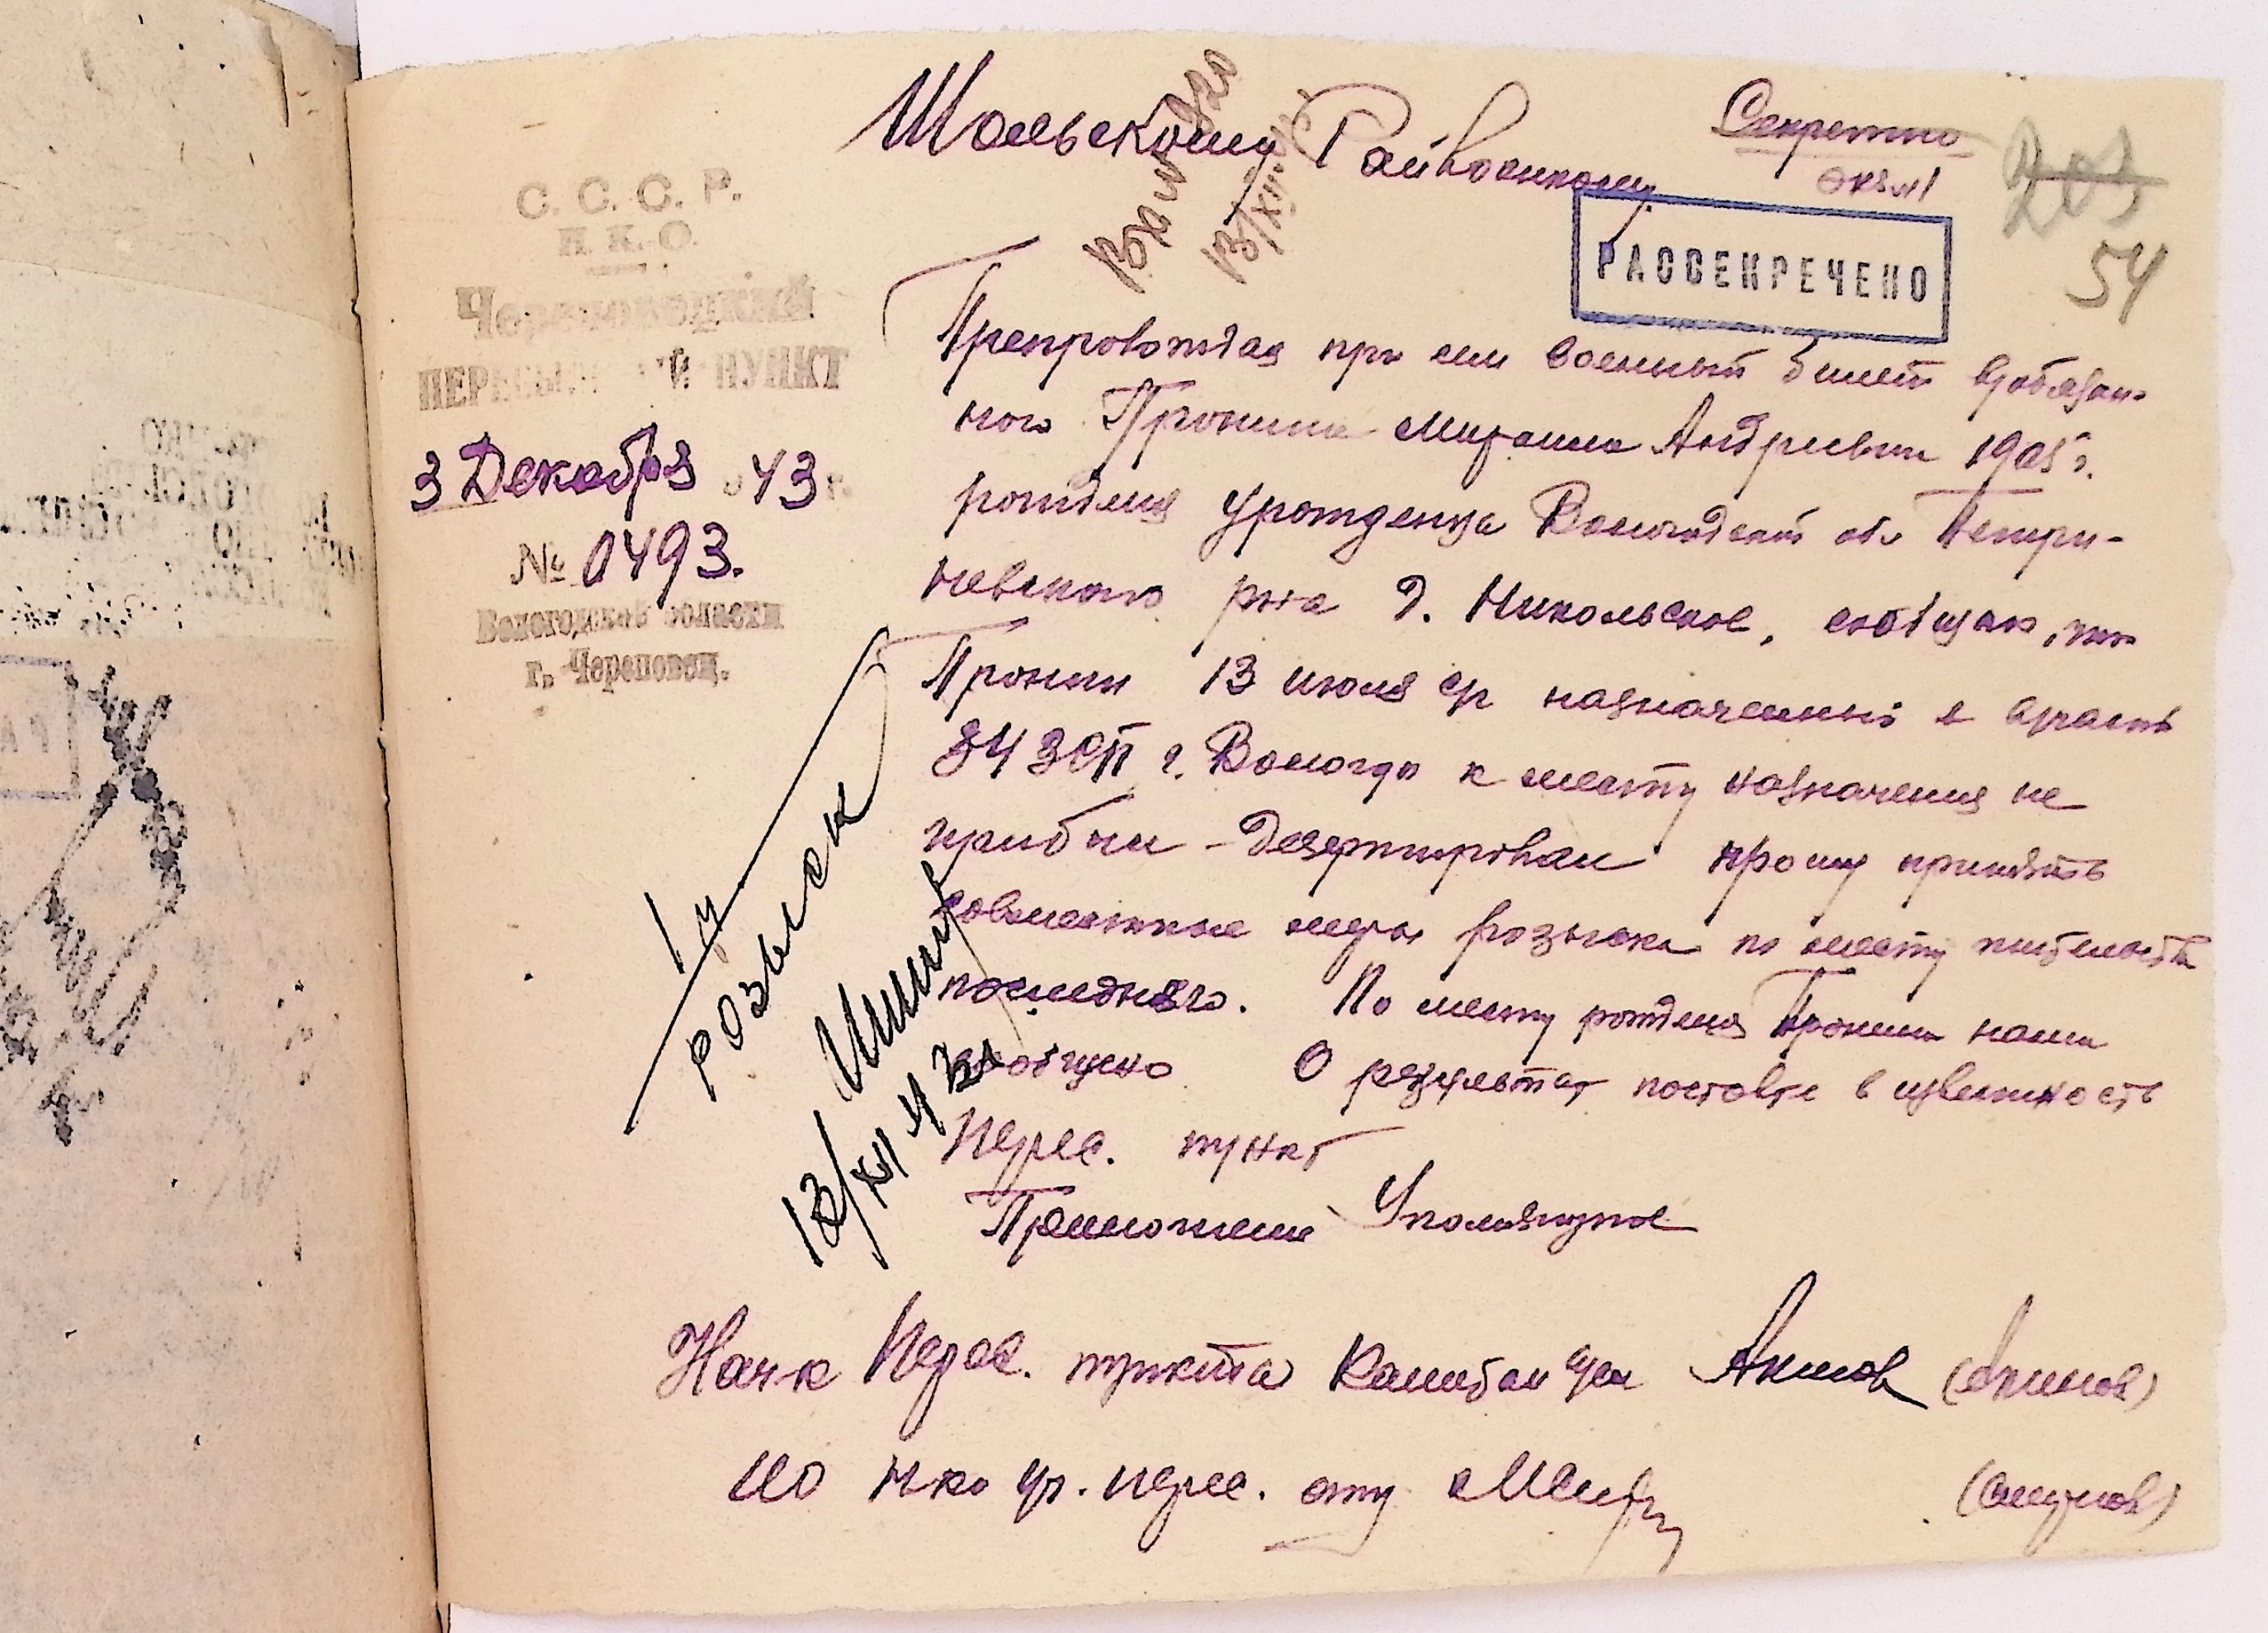 Шольскому Райвоенкому
Секретно
экз №1
203
54
РАССЕКРЕЧЕНО
С. С. С. Р.
Н. К. О.
Череповецкий
ПЕРЕСЫЛЬНЫЙ ПУНКТ
3 Декабря 43 г.
№ 0493.
Вологодской области
г. Череповец.
Препровождая при сем военный билет в/обязан-
ного Пронина Михаила Андреевич 1905 г.
рождения урожденца Вологодской обл Петри-
невского р-на д. Никольское, сообщаю, что
Пронин 13 июля с/г назначенный в в/часть
34 ЗСП г. Вологды к месту назначения не
прибыл - дезертировал прошу принять
совместные меры розыска по месту жительства
последнего. По месту рождения Пронина нами
сообщено О результат поставте в известность
Перес. пункт
Приложение Упомянутое
Нач-к Перес. пункта Капитан Акимов (Акимов)
ИО перес.
1ч
розыск
13/XII 43